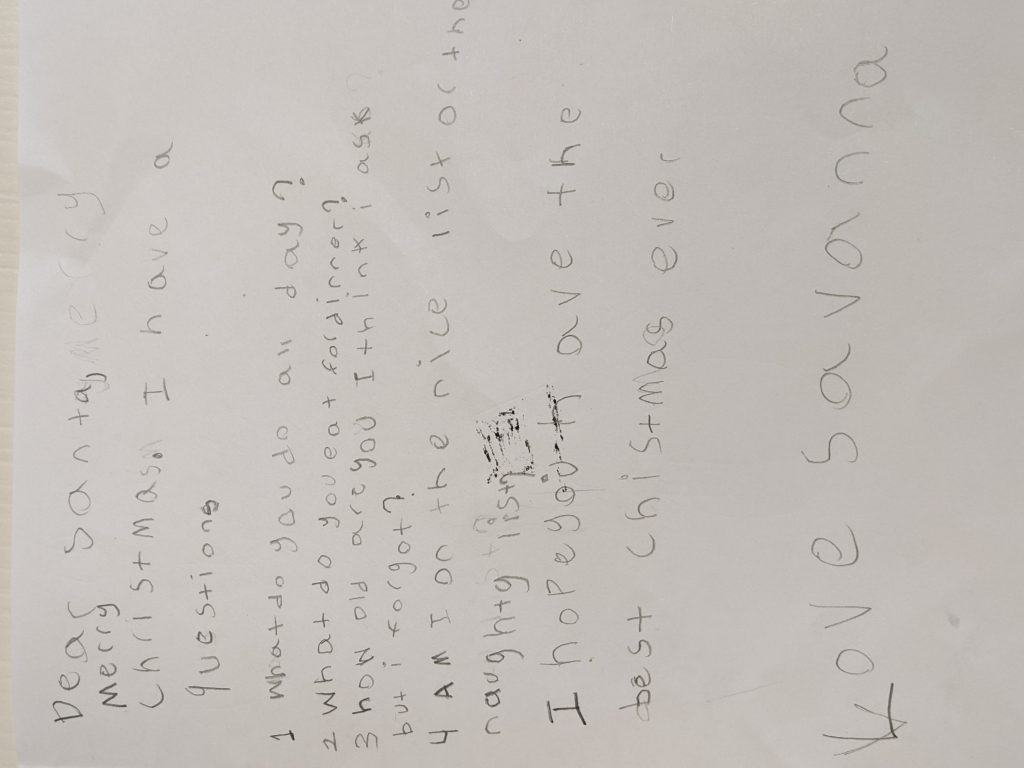 Dear Santa, merry
Merry
Christmas. I have a
questions
1 What do you do all day?
2 What do you eat for dinner?
3 how old are you I think i ask
but i forgot?
4 AM I on the nice list or the
naughty list
I hope you h ave the
best ChistMas ever
Love Savanna